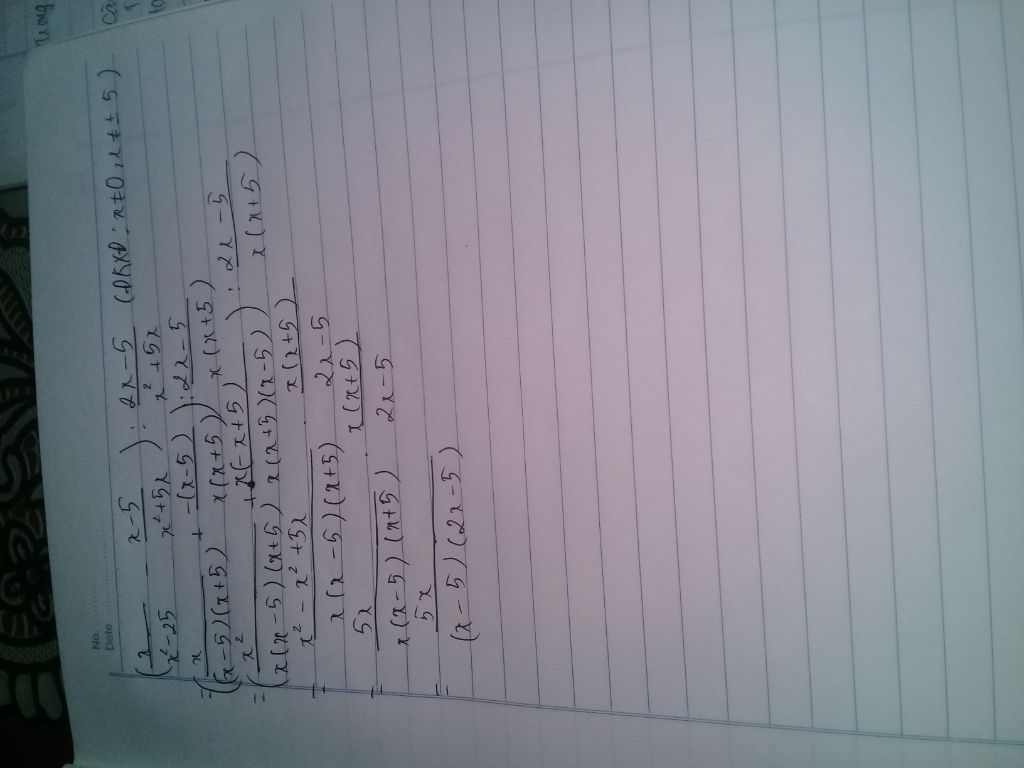 No.
Date
(x/(x²-25) - (x-5)/(x²+5x)) : (2x-5)/(x²+5x) (ĐKXĐ: x≠0, x≠±5)
= (x/((x-5)(x+5)) + -(x-5)/(x(x+5))) : (2x-5)/(x(x+5))
= (x²/(x(x-5)(x+5)) + x(-x+5)/(x(x+5)(x-5))) : (2x-5)/(x(x+5))
= (x²-x²+5x)/(x(x-5)(x+5)) . (x(x+5))/(2x-5)
= 5x/(x(x-5)(x+5)) . (x(x+5))/(2x-5)
= 5x/((x-5)(2x-5))